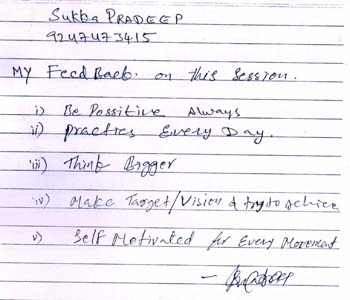 Sukka PRADEEP
9247473415
MY FeedBack. on this Session.
i) Be Possitive Always
ii) practies Every Day.
iii) Think Bigger
iv) Make Target/Vision & try to achive
v) Self Motivated for Every Movement